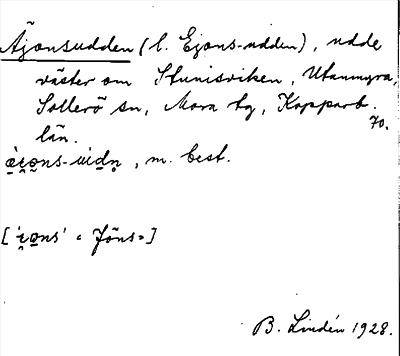 Äjonsudden (l. Ejons-udden), udde
väster om Stunisviken, Utanmyra,
Sollerö sn, Mora tg, Kopparb.
70.
län.
, m. best.
« Jöns»]
B. Lindén 1928.